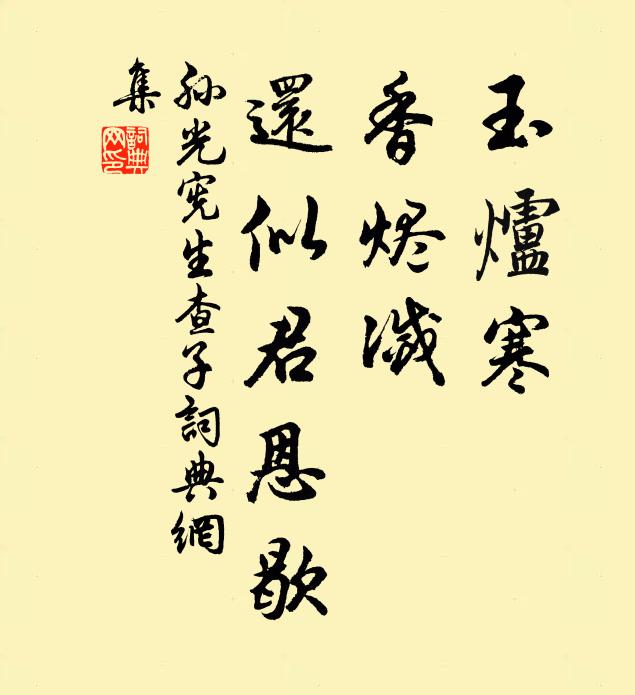 玉爐寒
香烬滅
還似君恩歇
孙光宪生查子詞典網
集
詞典网印